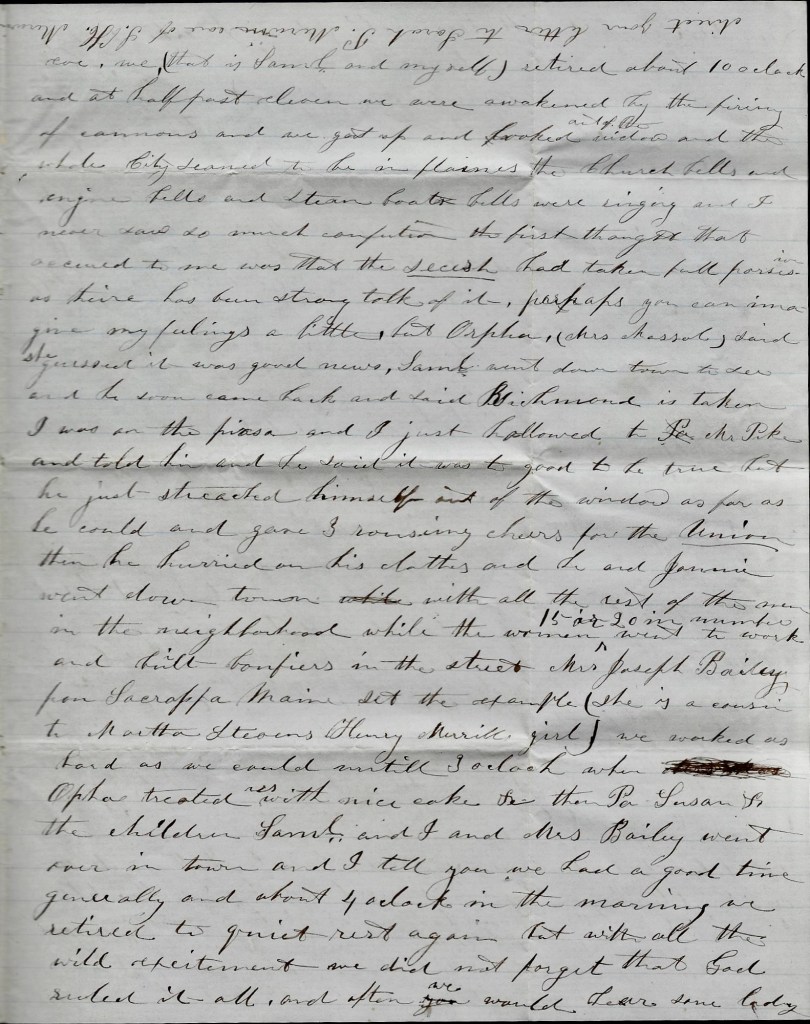 direct your letter to Sarah P. Merriam care of S. H. Merriam
eve, we, (that is Saml and myself) retired about 10 oclock
and at half past eleven we were awakened by the firing
of cannons and we got up and looked out of the widow and the
whole City seamed to be in flaimes the Church bells and
engine bells and steam boats bells were ringing and I
never saw so much confution the first thought that
occured to me was that the secesh had taken full possision
as theire has been strong talk of it, perhaps you can ima
gine my feelings a little, but Orpha, (Mrs ) said
she guessed it was good news, Saml went down town to see
and he soon came back and said Richmond is taken
I was on the piasa and I just hallowed to Mr Pike
and told him and he said it was to good to be true but
he just streached himself out of the window as far as
he could and gave 3 rousing cheers for the Union
then he hurried on his clothes and he and Jonnie
went down town with all the rest of the men
in the neighborhood while the women 15 or 20 in number went to work
and bilt bonfiers in the street Mrs Joseph Bailey
from Sacrappa Maine set the example (she is a cousin
to Martha Stevens Henry Merrills girl) we worked as
hard as we could untill 3 oclock when
Opha treated us with nice cake & then Pa Susan &
the children Saml. and I and Mrs Bailey went
over in town and I tell you we had a good time
generally and about 4 oclock in the morning we
retired to quiet rest again but with all the
wild excitement we did not forget that God
ruled it all, and often we would hear some lady